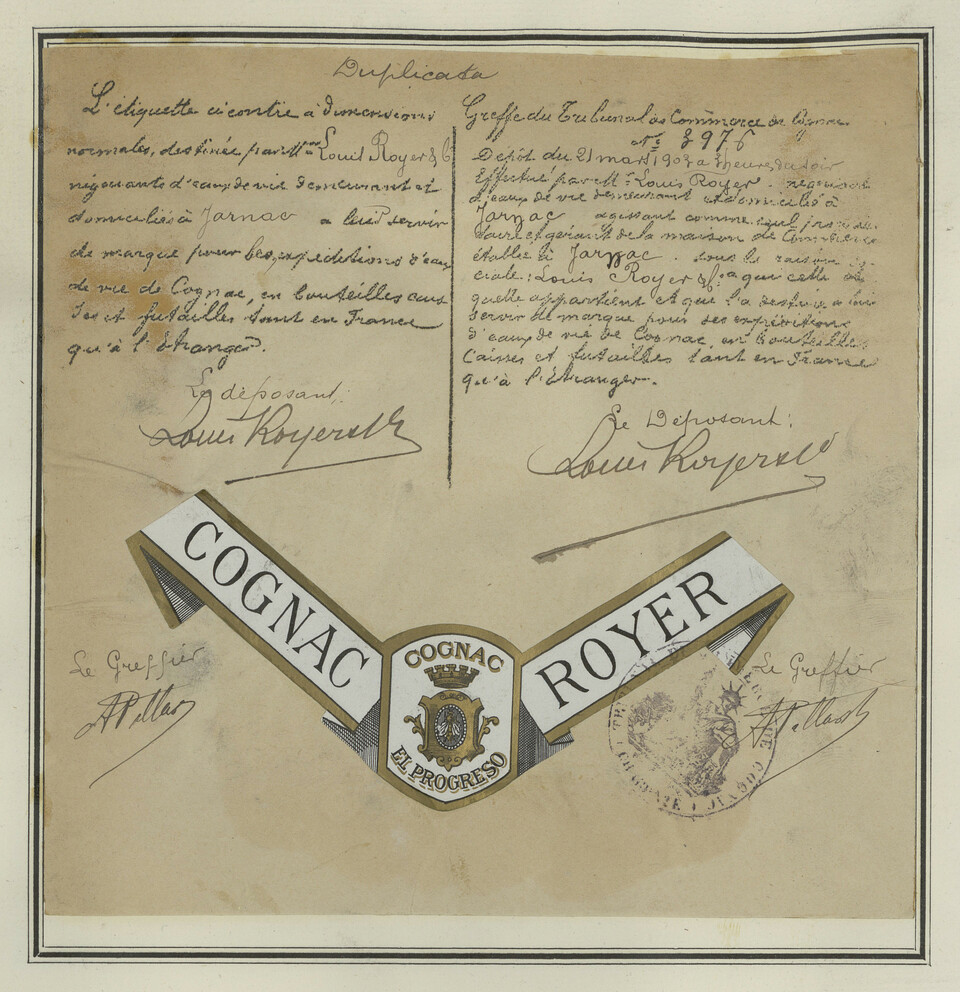 Duplicata
L'étiquette ci contre à dimensions
normales, destinée par Mrs Louis Royer & Co
négociants d'eaux de vie demeurant et
domiciliés à Jarnac a leur servir
de marque pour les expéditions d'eaux
de vie de Cognac, en bouteilles cais
ses et futailles tant en France
qu'à l'étranger.
Le déposant:
Louis Royer & Co
Greffe du Tribunal de Commerce de Cognac
No 8976
Dépôt du 21 mars 1903 a 3 heures du soir
Effectué par Mr Louis Royer négociant
d'eaux de vie demeurant et domicilié à
Jarnac agissant comme seul proprié
taire et gérant de la maison de Commerce
établie à Jarnac sous la raison so
ciale: Louis Royer & Co a qui cette éti
quette appartient et que l'a destinée à lui
servir de marque pour ses expéditions
d'eaux de vie de Cognac, en bouteilles
Caisses et futailles tant en France
qu'à l'étranger.
Le Déposant:
Louis Royer & Co
COGNAC
ROYER
COGNAC
EL PROGRESO
Le Greffier
Le Greffier
TRIBUNAL DE COMMERCE DE COGNAC